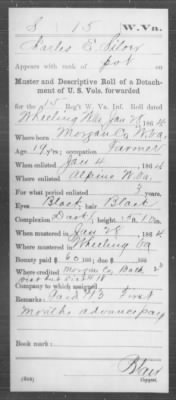 S 15 W.Va.
Charles E. Siler
Appears with rank of pvt on
Muster and Descriptive Roll of a Detachment
of U. S. Vols. forwarded
for the 15 Reg't W. Va. Inf. Roll dated
Wheeling Va Jan 28, 1864
Where born Morgan Co W.Va.
Age 19 y'rs; occupation Farmer
When enlisted Jan 4, 1864
Where enlisted Alpine W.Va.
For what period enlisted 3 years.
Eyes Black; hair Black
Complexion Dark; height 5 ft. in.
When mustered in Jan 28, 1864
Where mustered in Wheeling Va
Bounty paid $ 60 100; due $ 100
Where credited Morgan Co Bath
Company to which assigned
Remarks: Paid $13 First
months advance pay
Book mark:
Blair
Copyist.